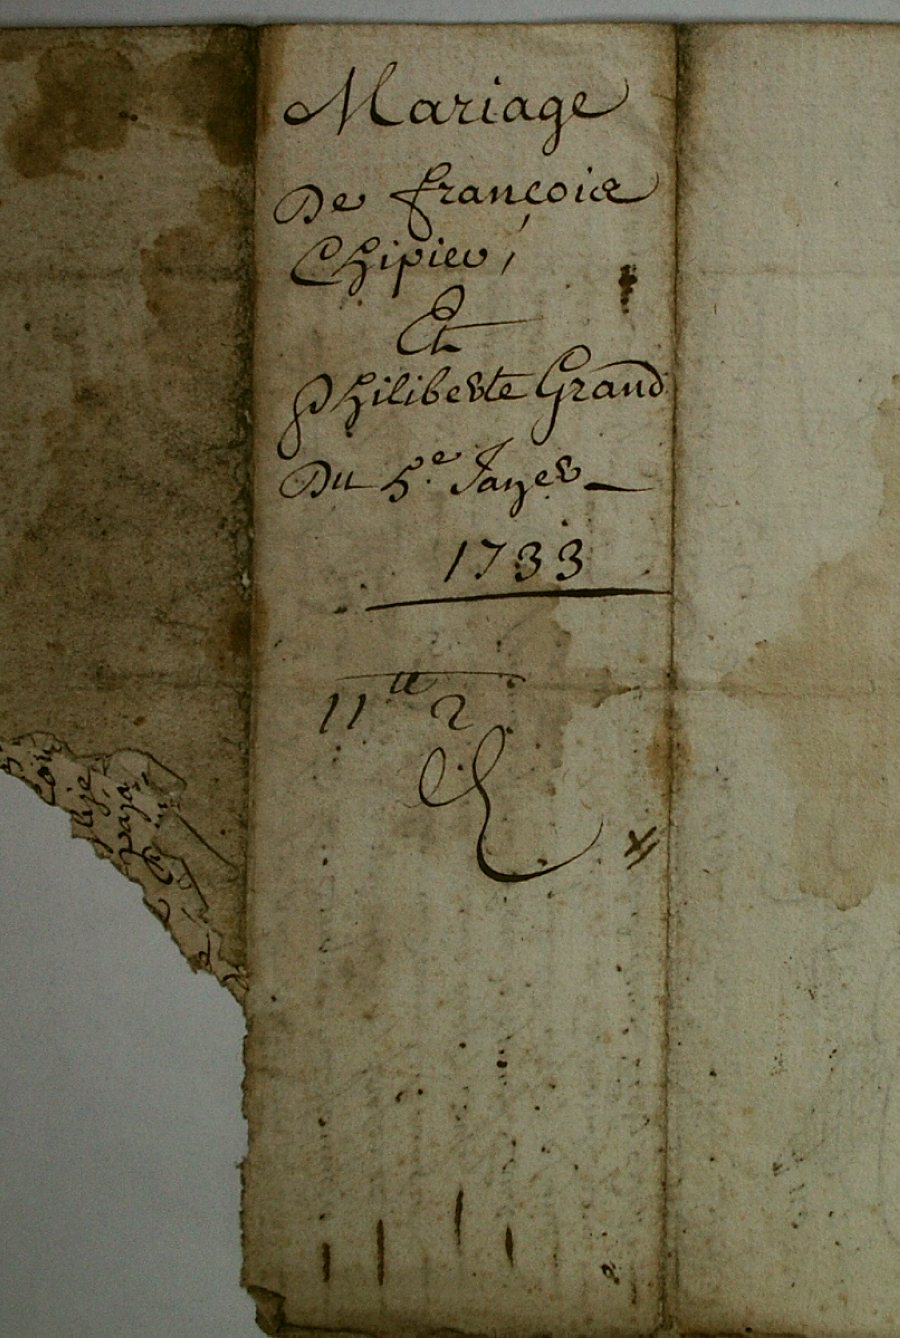 Mariage
De françois
Chipier,
Et
Philiberte Grand
Du 5.e Janer
1733
11 tt 2